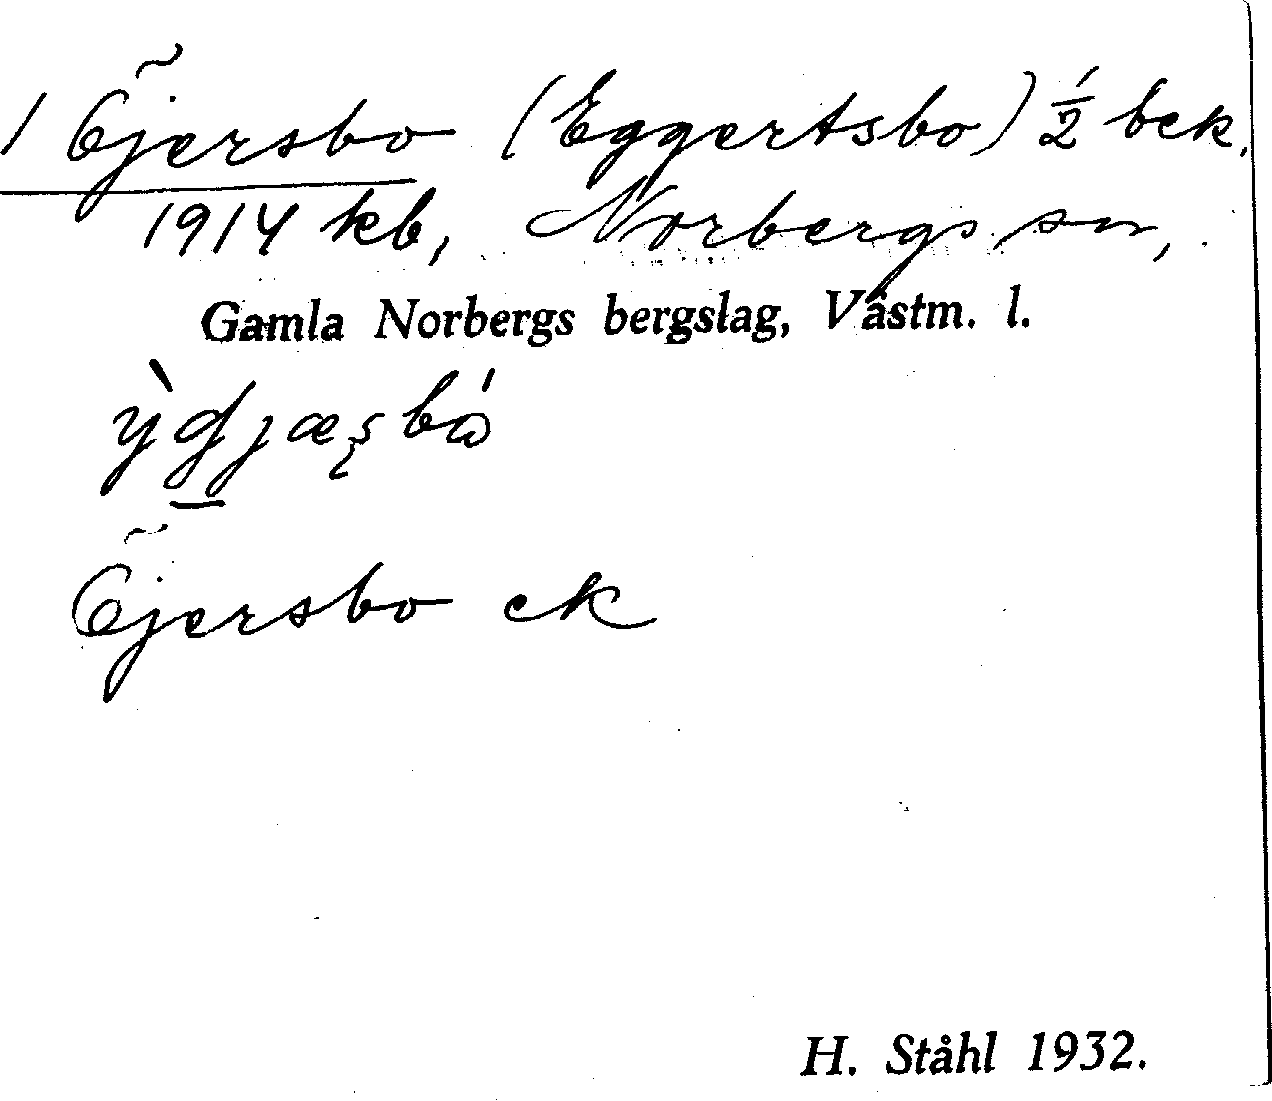 1 Öjersbo (Eggertsbo) ½ bek.
1914 kb, Norbergs sn,
Gamla Norbergs bergslag, Västm. l.
Öjersbo ek
H. Ståhl 1932.